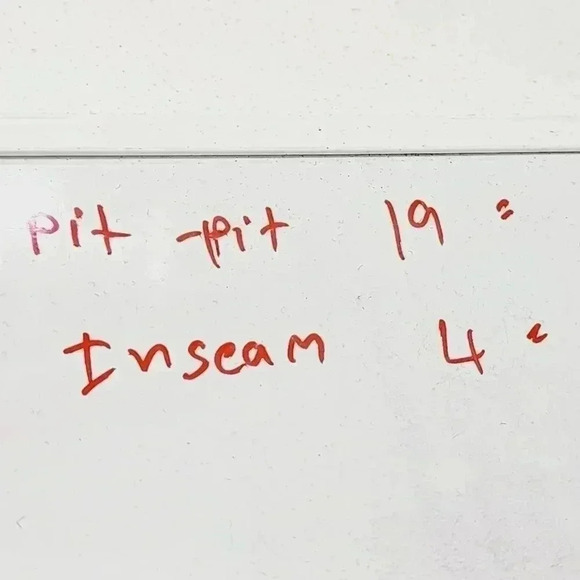 Pit -pit 19 "
Inseam 4 "